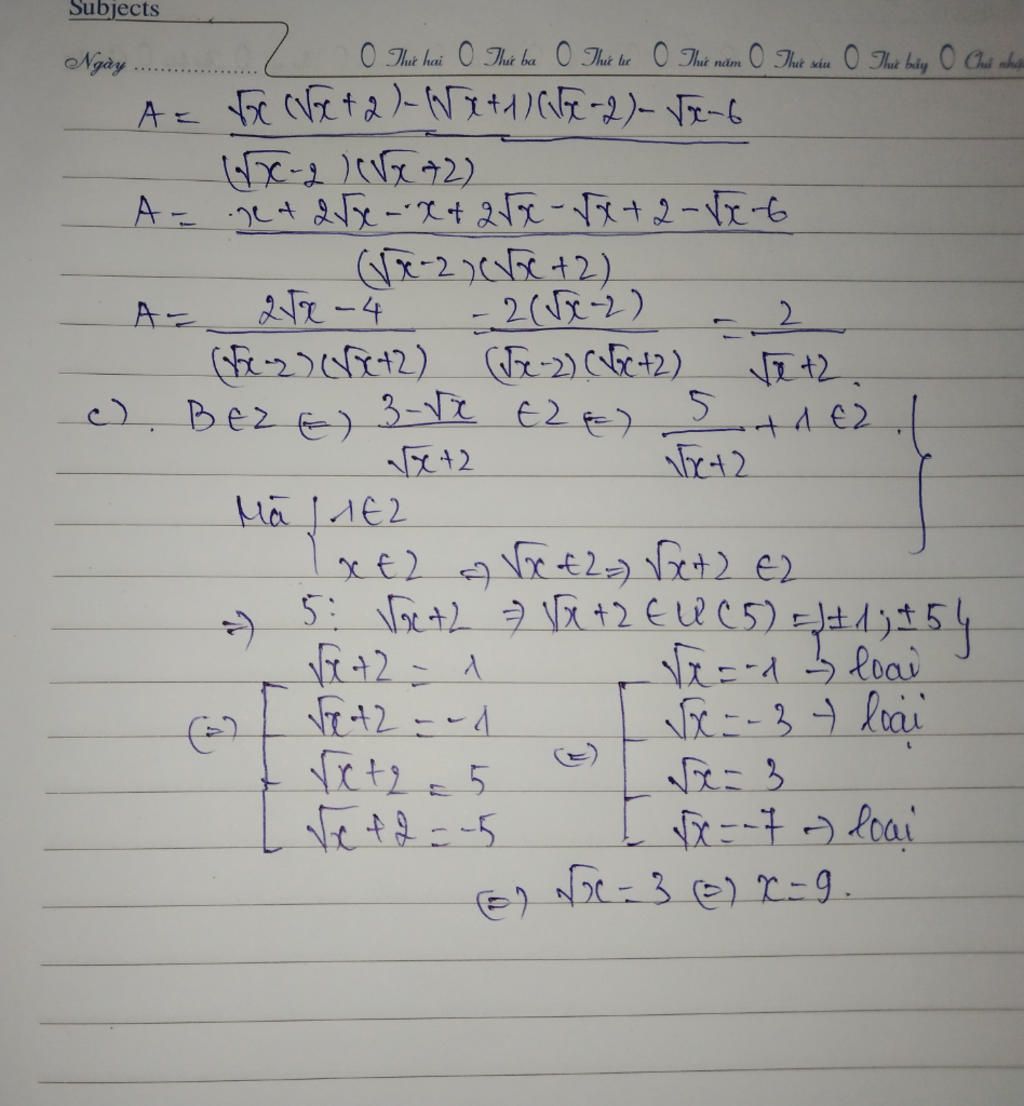 Subjects
Ngày ................... O Thứ hai O Thứ ba O Thứ tư O Thứ năm O Thứ sáu O Thứ bảy O Chủ nhậ
A = √x (√x + 2) - (√x + 1)(√x - 2) - √x - 6
(√x - 2)(√x + 2)
A = x + 2√x - x + 2√x - √x + 2 - √x - 6
(√x - 2)(√x + 2)
A = 2√x - 4 = 2(√x - 2) = 2
(√x - 2)(√x + 2) (√x - 2)(√x + 2) √x + 2.
c). B ∈ Z ⇔ 3 - √x ∈ Z ⇔ 5 + 1 ∈ Z. }
√x + 2 √x + 2
Mà { 1 ∈ Z
x ∈ Z ⇒ √x ∈ Z ⇒ √x + 2 ∈ Z
⇒ 5 ⋮ √x + 2 ⇒ √x + 2 ∈ Ư(5) = {±1; ±5}
√x + 2 = 1 √x = -1 → loại
⇔ [ √x + 2 = -1 ⇔ [ √x = -3 → loại
√x + 2 = 5 √x = 3
√x + 2 = -5 √x = -7 → loại
⇔ √x = 3 ⇔ x = 9.